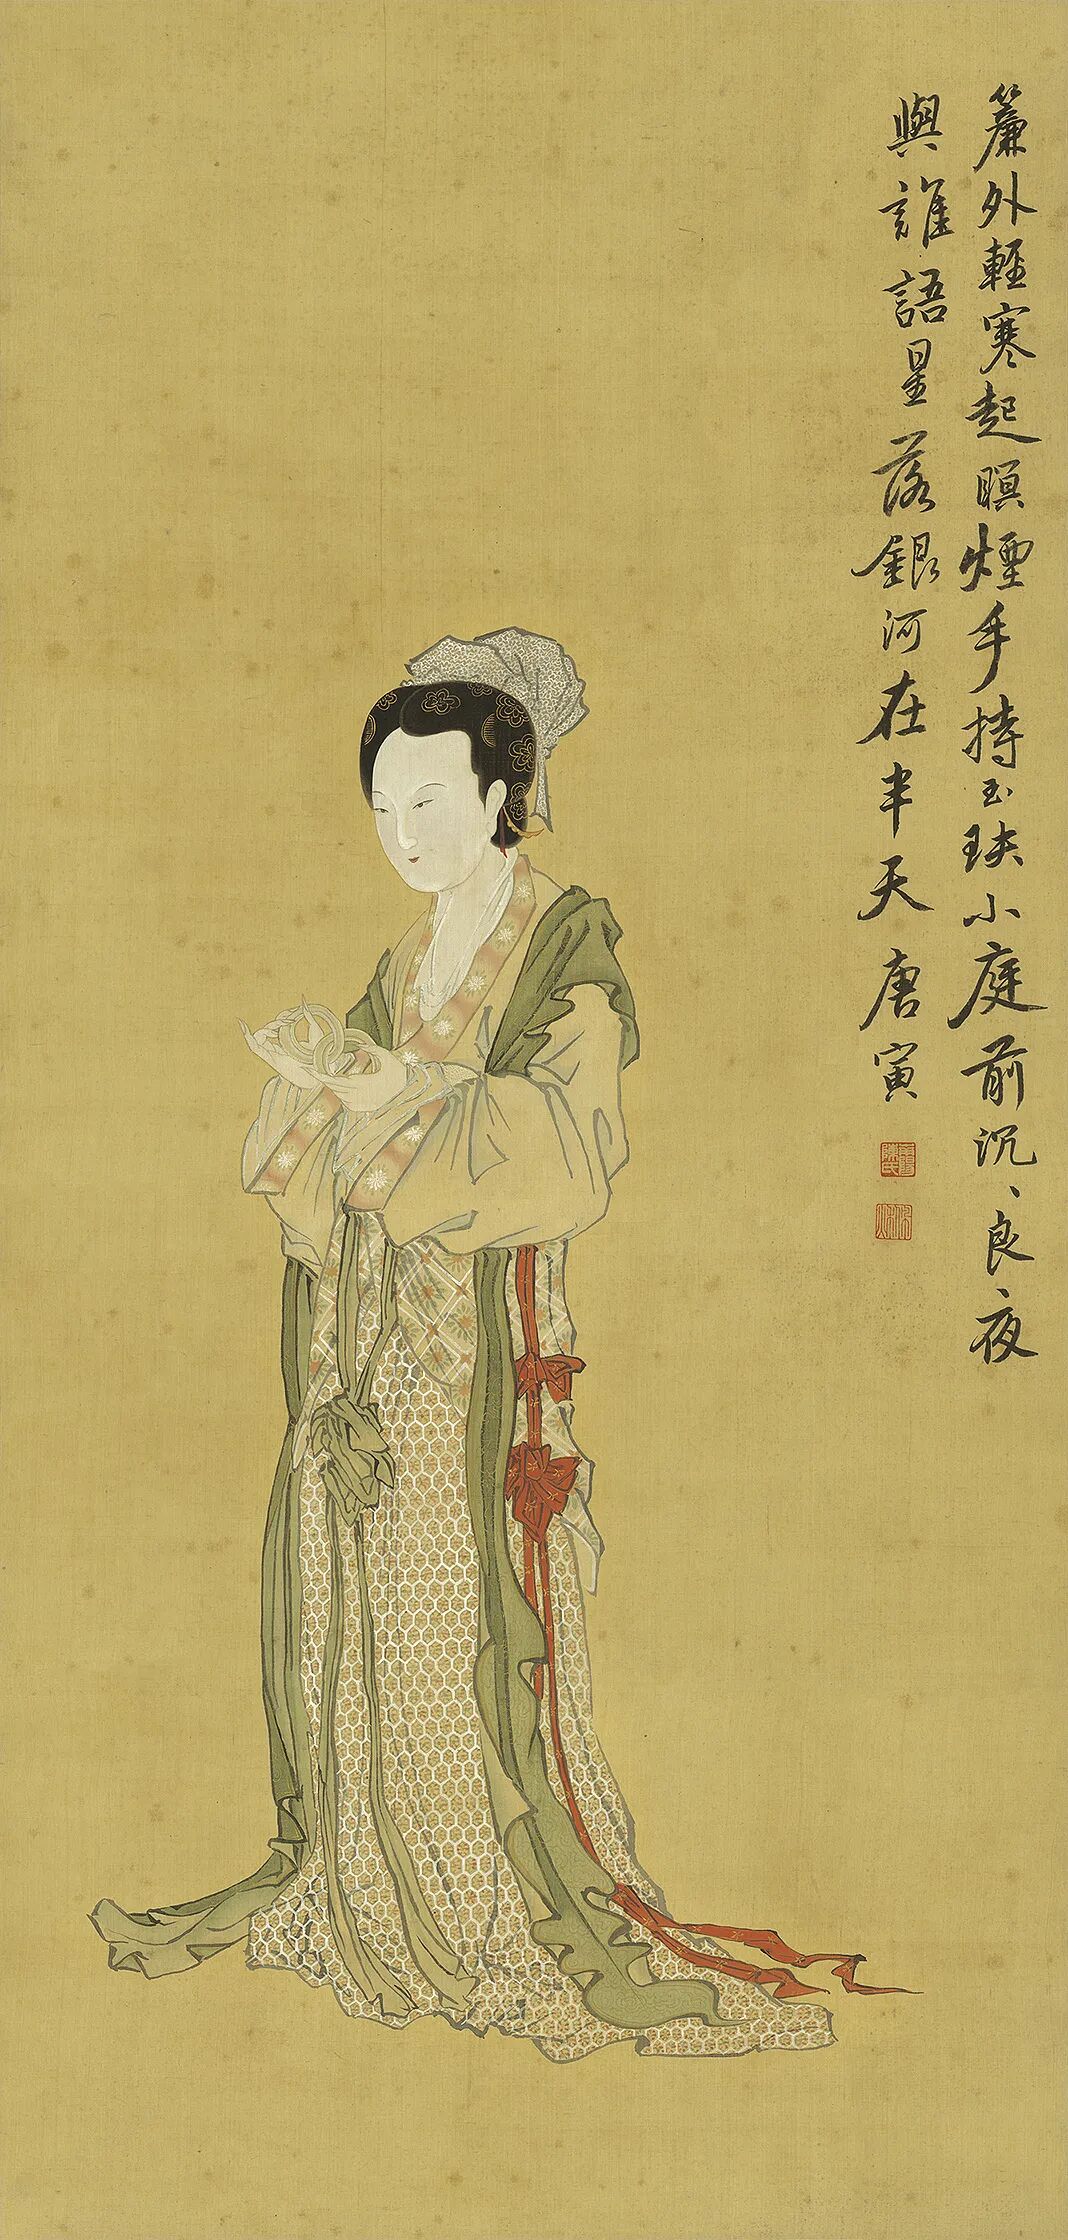 簾外輕寒起瞑煙手持玉玦小庭前沉、良夜
與誰語星落銀河在半天 唐寅